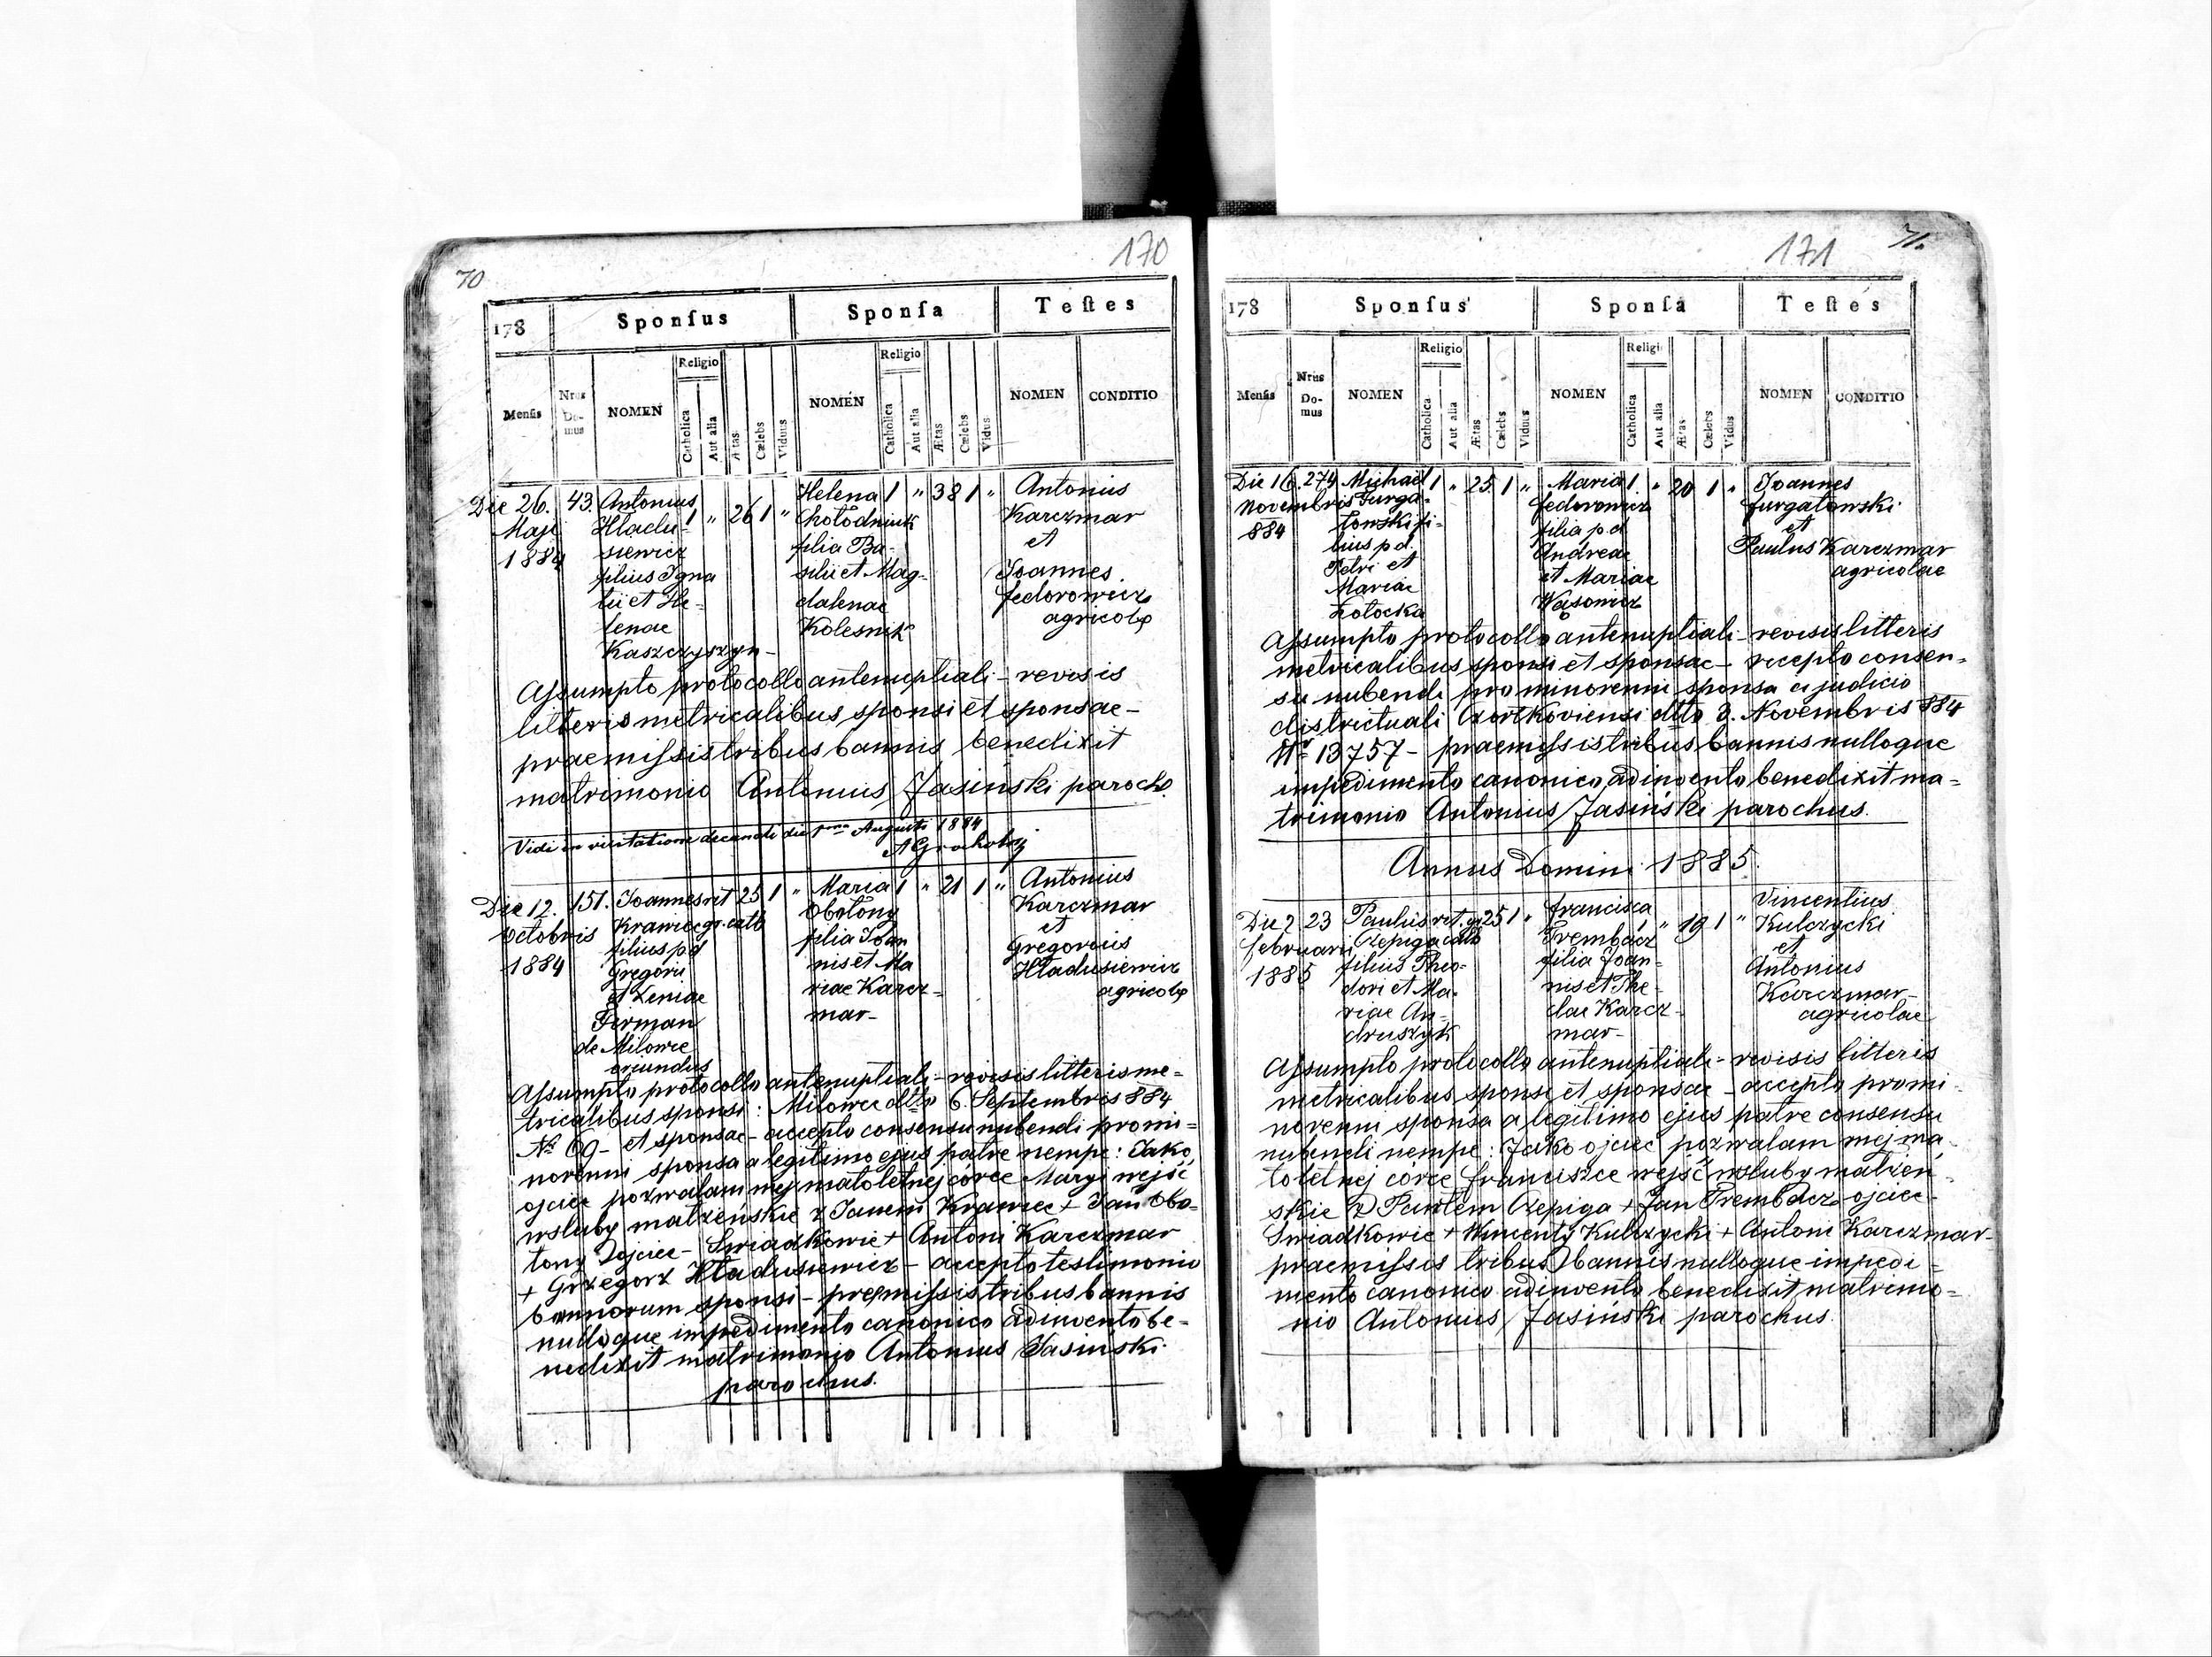 70
170
178
Sponſus
Sponſa
Teſtes
Menſis
Nrus Do- mus
NOMEN
Religio
Catholica
Aut alia
Ætas
Cælebs
Viduus
NOMEN
Religio
Catholica
Aut alia
Ætas
Cælebs
Vidus
NOMEN
CONDITIO
Die 26.
Maji
1884
43.
Antonius
Hladu-
siewicz
filius Igna
tii et He-
lenae
Kaszczyszyn-
1 " 26 1 "
Helena
Chołodniuk
filia Ba-
silii et Mag-
dalenae
Kolesnik
1 " 38 1 "
Antonius
Karczmar
et
Joannes
Fedorowicz
agricolae
Assumpto protocollo antenuptiali - revisis
litteris metricalibus sponsi et sponsae -
praemissis tribus bannis benedixit
matrimonio Antonius Jasiński paroch.
Vidi in visitatione decanali die 1ma Augusti 1884
Die 12.
Octobris
1884
151.
Joannes rit
Krawiec gr. cath
filius pd
Gregorii
et Xeniae
Ferman
de Milowce
oriundus
25 1 "
Maria
Obołony
filia Joan
nis et Ma
riae Karcz-
mar-
1 " 21 1 "
Antonius
Karczmar
et
Gregorius
Hładusiewicz
agricolae
Assumpto protocollo antenuptiali - revisis litteris me-
tricalibus sponsi: Milowce dtto 6. Septembris 884
No 69 - et sponsae - accepto consensu nubendi pro mi-
norenni sponsa a legitimo ejus patre nempe: Jako
ojciec pozwalam mej małoletnej córce Maryi wejść
wśluby małżeńskie z Janem Krawiec + Jan Obo-
łony Ojciec - Świadkowie + Antoni Karczmar
+ Grzegorz Hładusiewicz - accepto testimonio
bannorum sponsi - premissis tribus bannis
nulloque impedimento canonico adinvento be-
nedixit matrimonio Antonius Jasiński
parochus.
171
71.
178
Sponſus
Sponſa
Teſtes
Menſis
Nrus Do- mus
NOMEN
Religio
Catholica
Aut alia
Ætas
Cælebs
Viduus
NOMEN
Religi
Catholica
Aut alia
Ætas
Cælebs
Vidus
NOMEN
CONDITIO
Die 16.
Novembris
884
274
Michael
Furga-
łonski fi-
lius pd.
Petri et
Mariae
Zołocka
1 " 25 1 "
Maria
Fedorowicz
filia p.d
Andreae
et Mariae
Wąsowicz
1 " 20 1 "
Joannes
Furgałonski
et
Paulus Karczmar
agricolae
Assumpto protocollo antenuptiali - revisis litteris
metricalibus sponsi et sponsae - recepto consen-
su nubendi pro minorenni sponsa a judicio
districtuali Czortkoviensi dtto 3. Novembris 884
Nr 13757 - praemissis tribus bannis nulloque
impedimento canonico adinvento benedixit ma-
trimonio Antonius Jasiński parochus.
Annus Domini 1885.
Die 7
februarii
1885
23
Paulus rit. gr
Czepiga cath
filius Theo-
dori et Ma-
riae An-
druszyk
25 1 "
Francisca
Trembacz
filia Joan-
nis et The-
clae Karcz-
mar-
" 19 1 "
Vincentius
Kulczycki
et
Antonius
Karczmar-
agricolae
Assumpto protocollo antenuptiali - revisis litteris
metricalibus sponsi et sponsae - accepto pro mi-
norenni sponsa a legitimo ejus patre consensu
nubendi nempe: Jako ojciec pozwalam mej ma
łoletnej córce Franciszce wejść wśluby małżeń-
skie z Pawłem Czepiga + Jan Trembacz ojciec -
Świadkowie + Wincenty Kulczycki + Antoni Karczmar-
praemissis tribus bannis nulloque impedi-
mento canonico adinvento benedixit matrimo-
nio Antonius Jasiński parochus.